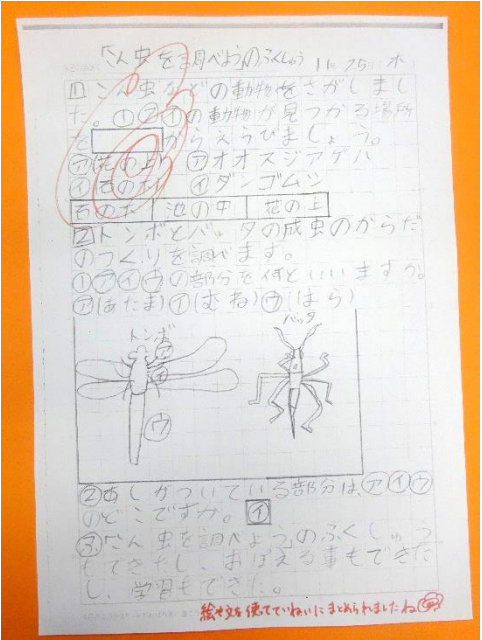 「こん虫を調べよう」のふくしゅう 11月25日(木)
1こん虫などの動物をさがしまし
た。①⑦①の動物が見つかる場所
を□からえらびましょう。
㋐(花の上) ㋐アオスジアゲハ
㋑石の下 ㋑ダンゴムシ
石の下 池の中 花の上
2トンボとバッタの成虫のからだ
のつくりを調べます。
①㋐㋑㋒の部分を何といいますか。
㋐(あたま)㋑(むね)㋒(はら)
トンボ バッタ
㋐
㋑
㋒
②あしがついている部分は、㋐㋑㋒
のどこですか。㋑
③「こん虫を調べよう」のふくしゅう
もできたし、おぼえる事もできた
し、学習もできた。
絵や文を使ってていねいにまとめられましたね